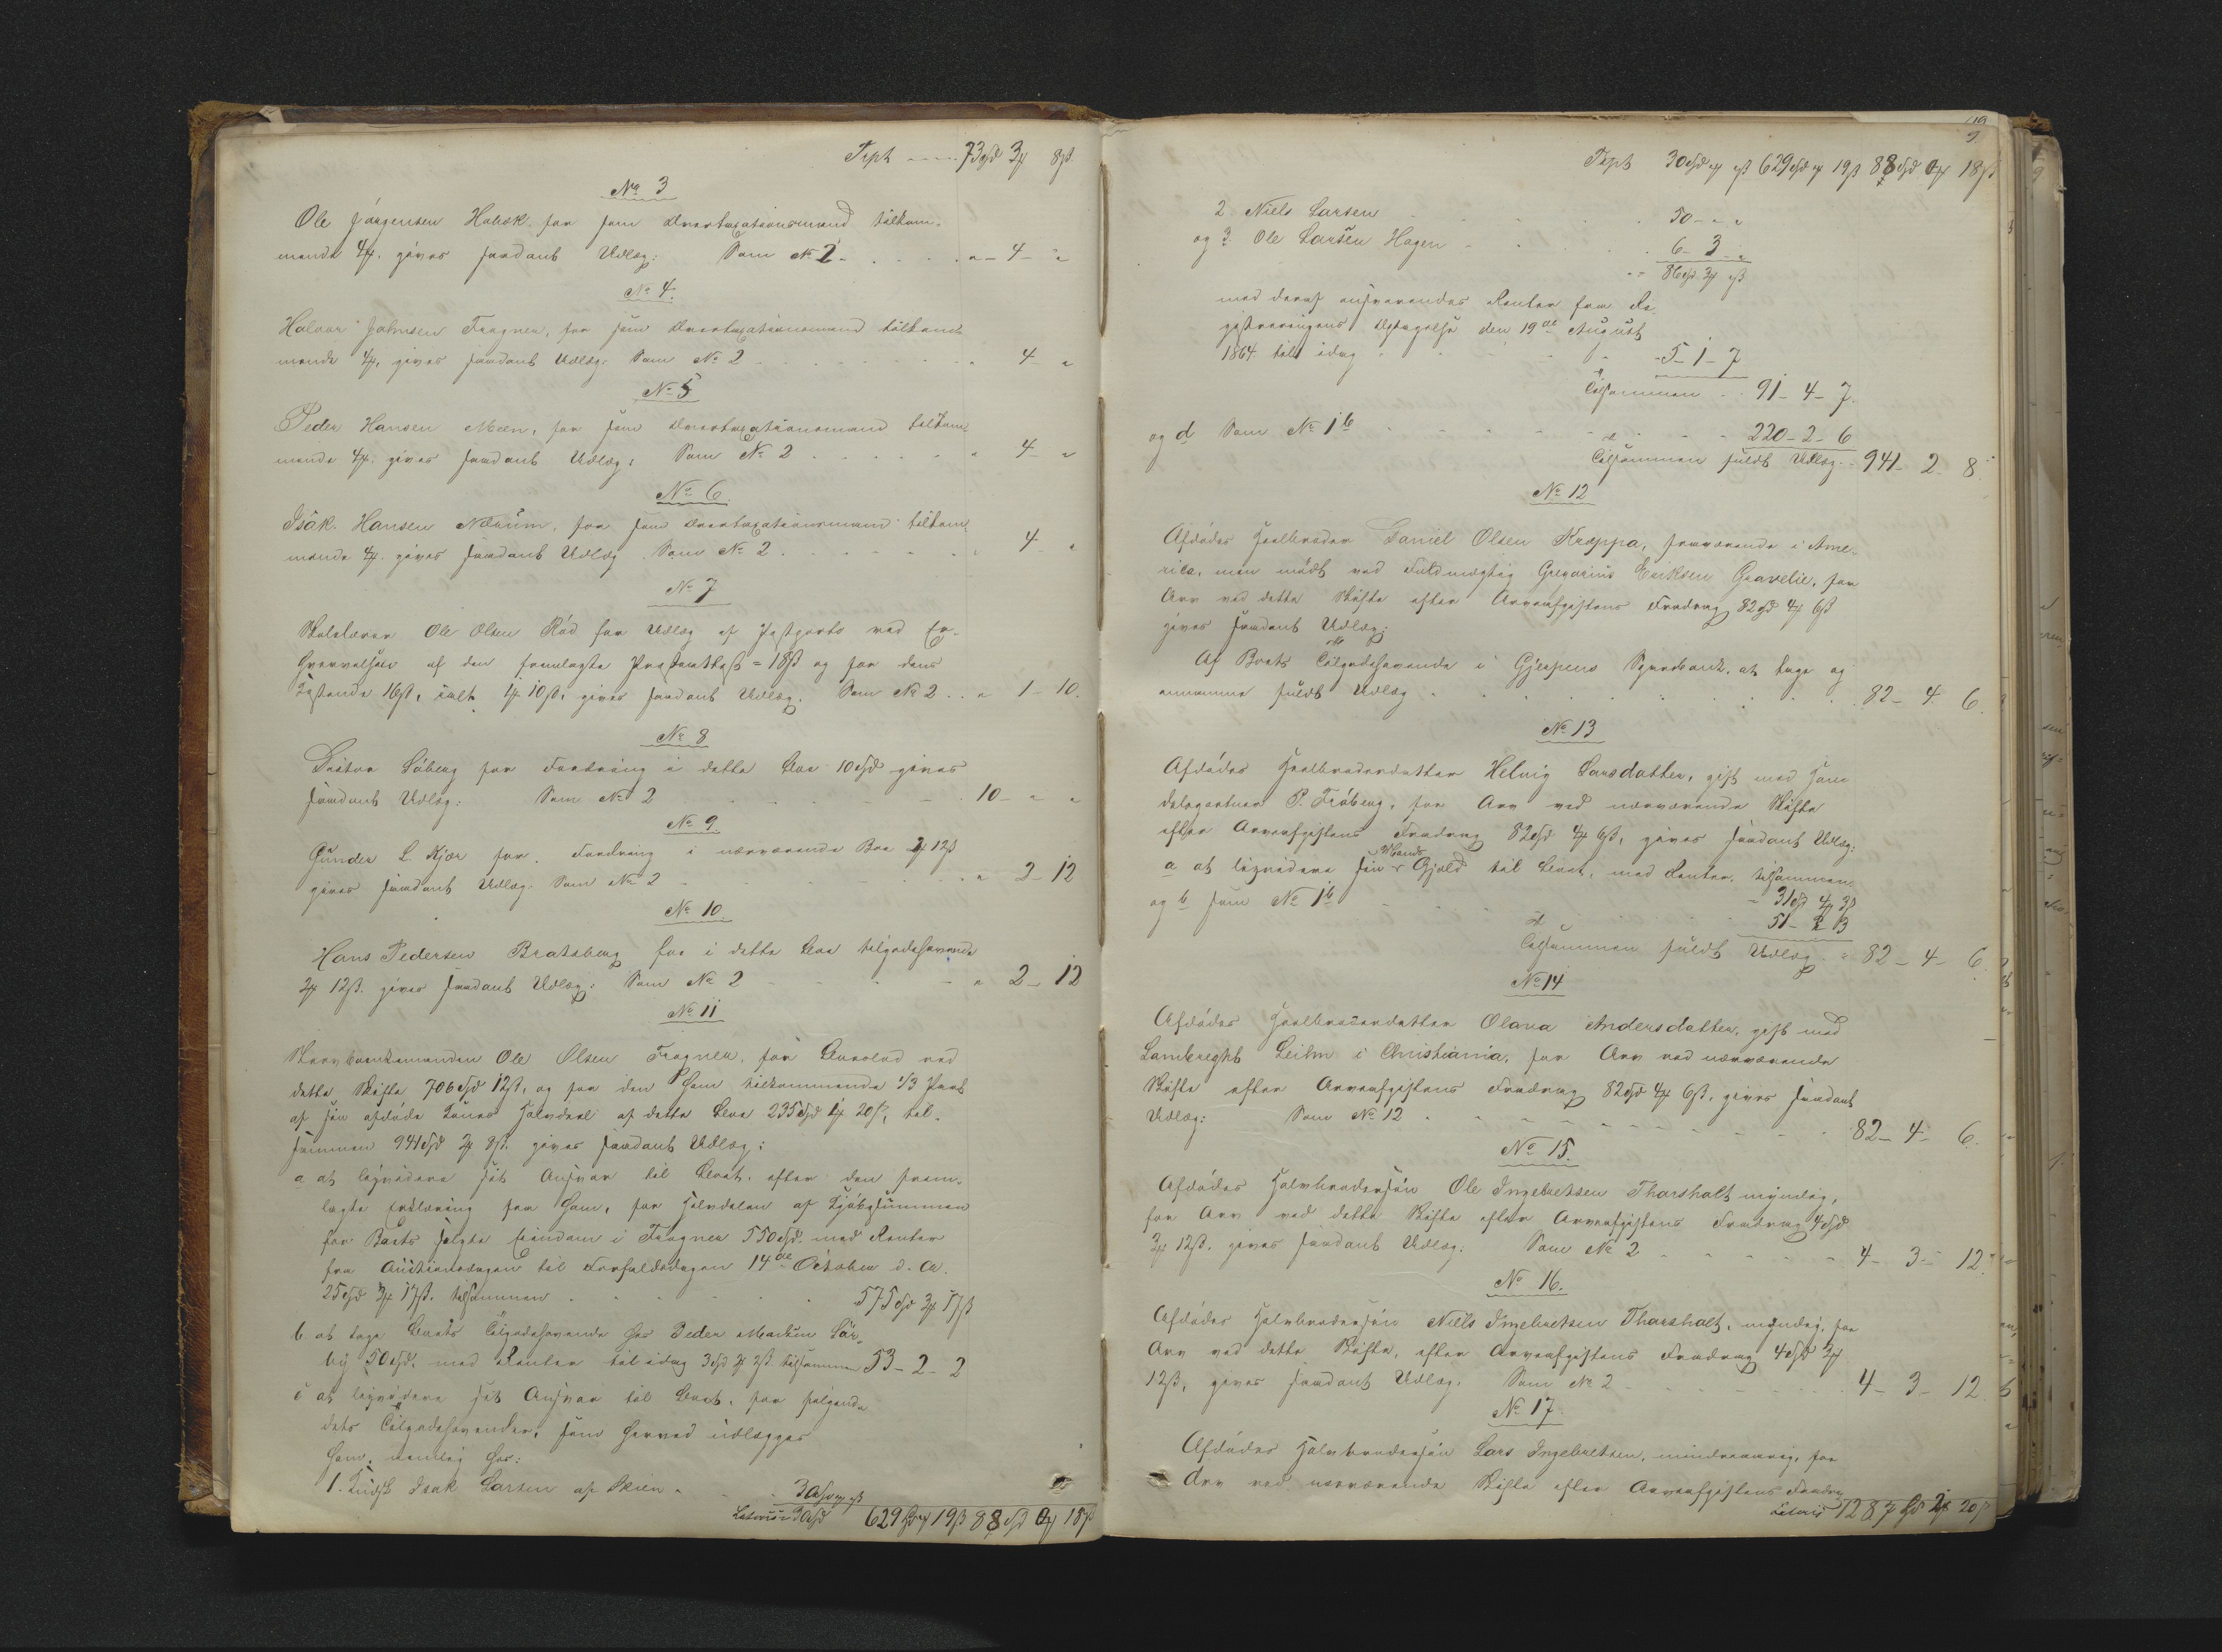 Trpt ---- 73 Spd 3 ₰ 8 ß.
No 3
Ole Jörgensen Holvek for som Overtaxationsmand tilkom-
mende 4 ₰. gives saadant Udlæg: Som No 2 . . . . „ - 4 - „
No 4.
Halvor Johnsen Fragner, for som Overtaxationsmand tilkom-
mende 4 ₰, gives saadant Udlæg: Som No 2 - - - - „ 4 - „
No 5
Peder Hansen Mæen, for som Overtaxationsmand tilkom-
mende 4 ₰. gives saadant Udlæg: Som No 2 . . . . „ 4 - „
No 6.
Isak Hansen Nærum, for som Overtaxationsmand tilkom-
mende 4 ₰. gives saadant Udlæg. Som No 2 . . . . „ 4 - „
No 7
Skolelærer Ole Olsen Röd for Udlæg af Postporto ved Er-
hvervelsen af den fremlagte = 18 ß og for dens
16 ß, ialt 1 ₰ 10 ß, gives saadant Udlæg. Som No 2 . . „ 1 - 10.
No 8
Doctor Söberg for Fordring i dette Boe 10 Spd gives
saadant Udlæg: Som No 2 - - - - - 10 - „ „
No 9.
Gunder L. Kjær for Fordring i nærværende Boe 2 ₰ 12 ß
gives saadant Udlæg. Som No 2 - - - - „ 2 - 12
No 10.
Hans Pedersen Bratsberg for i dette Boe tilgodehavende
2 ₰ 12 ß. gives saadant Udlæg: Som No 2 - - - - „ 2 - 12
No 11
Ole Olsen Fragner, for Boeslod ved
dette Skifte 706 Spd 12 ß, og for den ham tilkommende 1/3 Part
af sin afdöde Kones Halvdeel af dette Boe 235 Spd 1 ₰ 20 ß, til-
sammen 941 Spd 2 ₰ 8 ß. gives saadant Udlæg:
a at liqvidere sit Ansvar til Boet, efter den frem-
lagte Erklæring fra ham, for Halvdelen af Kjöbesummen
for Boets solgte Eiendom i Fragner 550 Spd. med Renter
fra Auctionsdagen til Forfaldsdagen 14de October d. A.
25 Spd 3 ₰ 17 ß. tilsammen . . . . . 575 Spd 3 ₰ 17 ß
b at tage Boets Tilgodehavende hos Peder Martin Sör-
by 50 Spd, med Renter til idag 3 Spd 2 ₰ 2 ß. tilsammen 53 - 2 - 2
c at liqvidere sit Ansvar til Boet, for fölgende
dets Tilgodehavender, som herved udlægges
ham, nemlig hos:
1. Isak Larsen af Skien . . . 30 Spd „ ₰ „ ß
Lateris 30 Spd 629 Spd „ ₰ 19 ß 88 Spd 0 ₰ 18 ß
119
9
Trpt 30 Spd „ ₰ „ ß 629 Spd „ ₰ 19 ß 88 Spd 0 ₰ 18 ß
2 Niels Larsen . . . . 50 - „ „
og 3. Ole Larsen Hagen - . . . 6 - 3 - „
86 Spd 3 ₰ „ ß
med deraf ansvarendes Renter fra Re-
gistreringens Optagelse den 19de August
1864 til idag . . . . - 5 - 1 - 7
Tilsammen . . 91 - 4 - 7.
og d Som No 1 b . . . . 220 - 2 - 6
Tilsammen fuldt Udlæg . . 941 - 2 - 8.
No 12
Afdödes Heelbroder Daniel Olsen Kræppa, fraværende i Ame-
rica, men mödt ved Fuldmægtig Gregorius Eriksen Gravelie, for
Arv ved dette Skifte efter Arveafgiftens Fradrag 82 Spd 4 ₰ 6 ß
gives saadant Udlæg:
Af Boets Tilgodehavende i Gjerpens Sparebank, at tage og
annamme fuldt Udlæg . . . . . 82 - 4. 6.
No 13
Afdödes Heelbroderdatter Helvig Larsdatter, gift med Han-
delsgartner P. Fröberg, for Arv ved nærværende Skifte
efter Arveafgiftens Fradrag 82 Spd 4 ₰ 6 ß, gives saadant Udlæg:
a at liqvidere sin Mands Gjeld til Boet, med Renter, tilsammen
- 31 Spd 4 ₰ 3 ß
og b som No 1 b . . . . 51 - „ 3
Tilsammen fuldt Udlæg . . 82 - 4 - 6.
No 14
Afdödes Heelbroderdatter Olava Andersdatter, gift med
Lambreght Leihn i Christiania, for Arv ved nærværende
Skifte efter Arveafgiftens Fradrag 82 Spd 4 ₰ 6 ß, gives saadant
Udlæg: Som No 12 . . . . . 82 - 4 - 6.
No 15.
Afdödes Halvbrodersön Ole Ingebretsen Tharshalt myndig,
for Arv ved dette Skifte efter Arveafgiftens Fradrag 4 Spd
3 ₰ 12 ß. gives saadant Udlæg: Som No 2 . . . . 4 - 3 - 12.
No 16.
Afdödes Halvbrodersön Niels Ingebretsen Tharshalt, myndig, for
Arv ved dette Skifte, efter Arveafgiftens Fradrag 4 Spd 3 ₰
12 ß, gives saadant Udlæg. Som No 2 . . . . 4 - 3 - 12.
No 17.
Afdödes Halvbrodersön Lars Ingebretsen, mindreaarig, for
Arv ved nærværende Skifte efter Arveafgiftens Fradrag
Lateris 1287 Spd 2 ₰ 20 ß